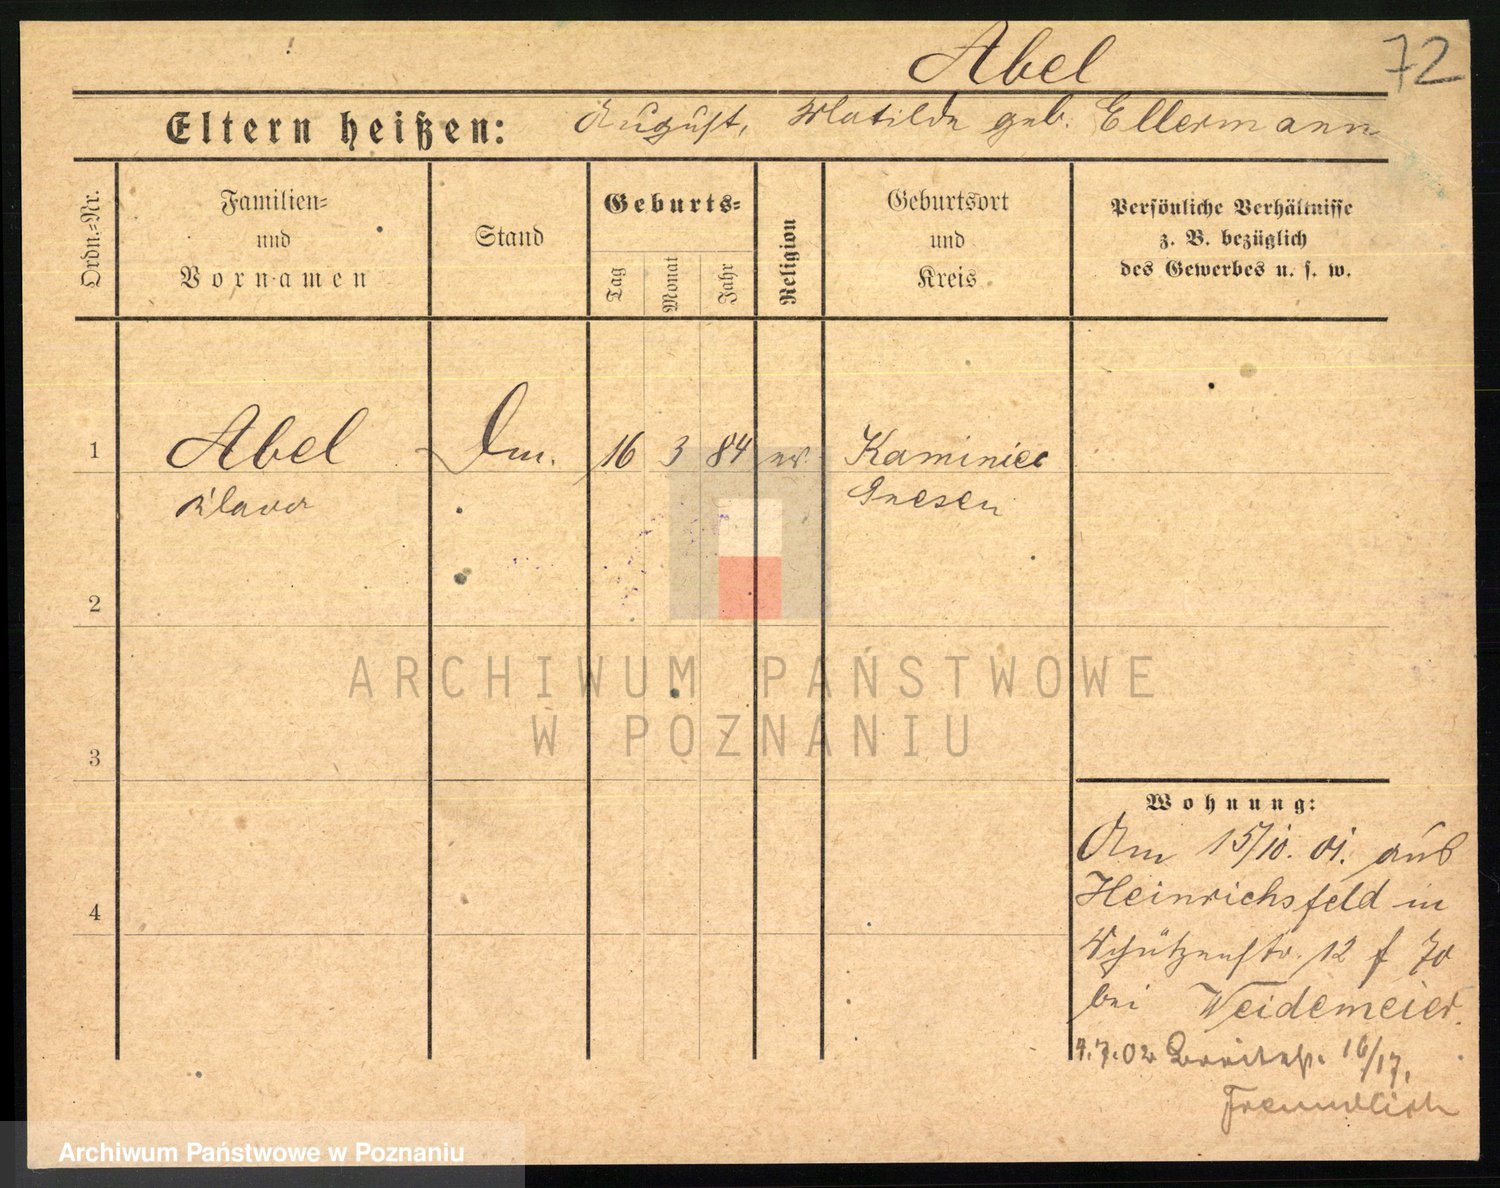 Abel
72
Eltern heißen: August, Matilde geb. Ellermann
Ordn.-Nr.
Familien-
und
Vornamen
Stand
Geburts-
Tag
Monat
Jahr
Religion
Geburtsort
und
Kreis
Persönliche Verhältnisse
z. B. bezüglich
des Gewerbes u. s. w.
1 Abel 16 3 84 ev. Kaminiec
Klara Gnesen
2
3
4
Wohnung:
Am 15/10. 01. aus
Heinrichsfeld in
Schützenstr. 12
bei Weidemeier.
4.7.02 Breitestr. 16/17.
Freundlich
ARCHIWUM PAŃSTWOWE
W POZNANIU
Archiwum Państwowe w Poznaniu